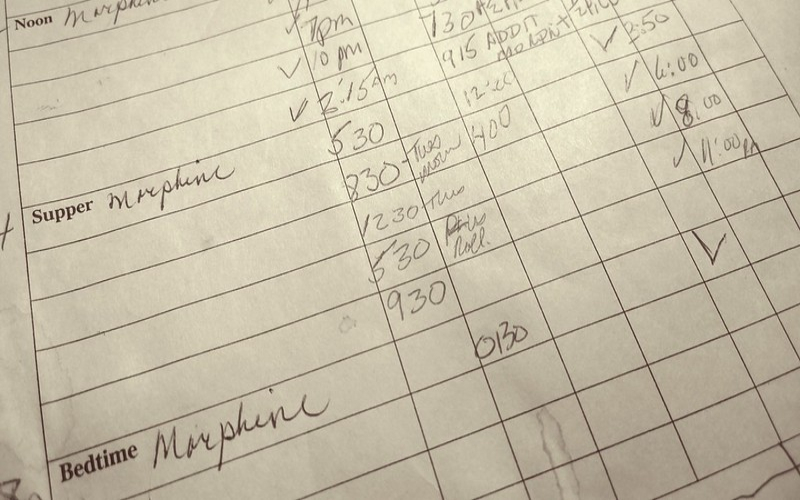 Noon Morphine
✓ 7pm 130
✓ 10 pm 915 ADDIT ✓ 3:50
✓ 3:15 Am 12:00 ✓ 6:00
530 400 ✓ 8:00
Supper Morphine 830 - Tues ✓ 11:00
1230 Tues
530
930 ✓
0130
Bedtime Morphine